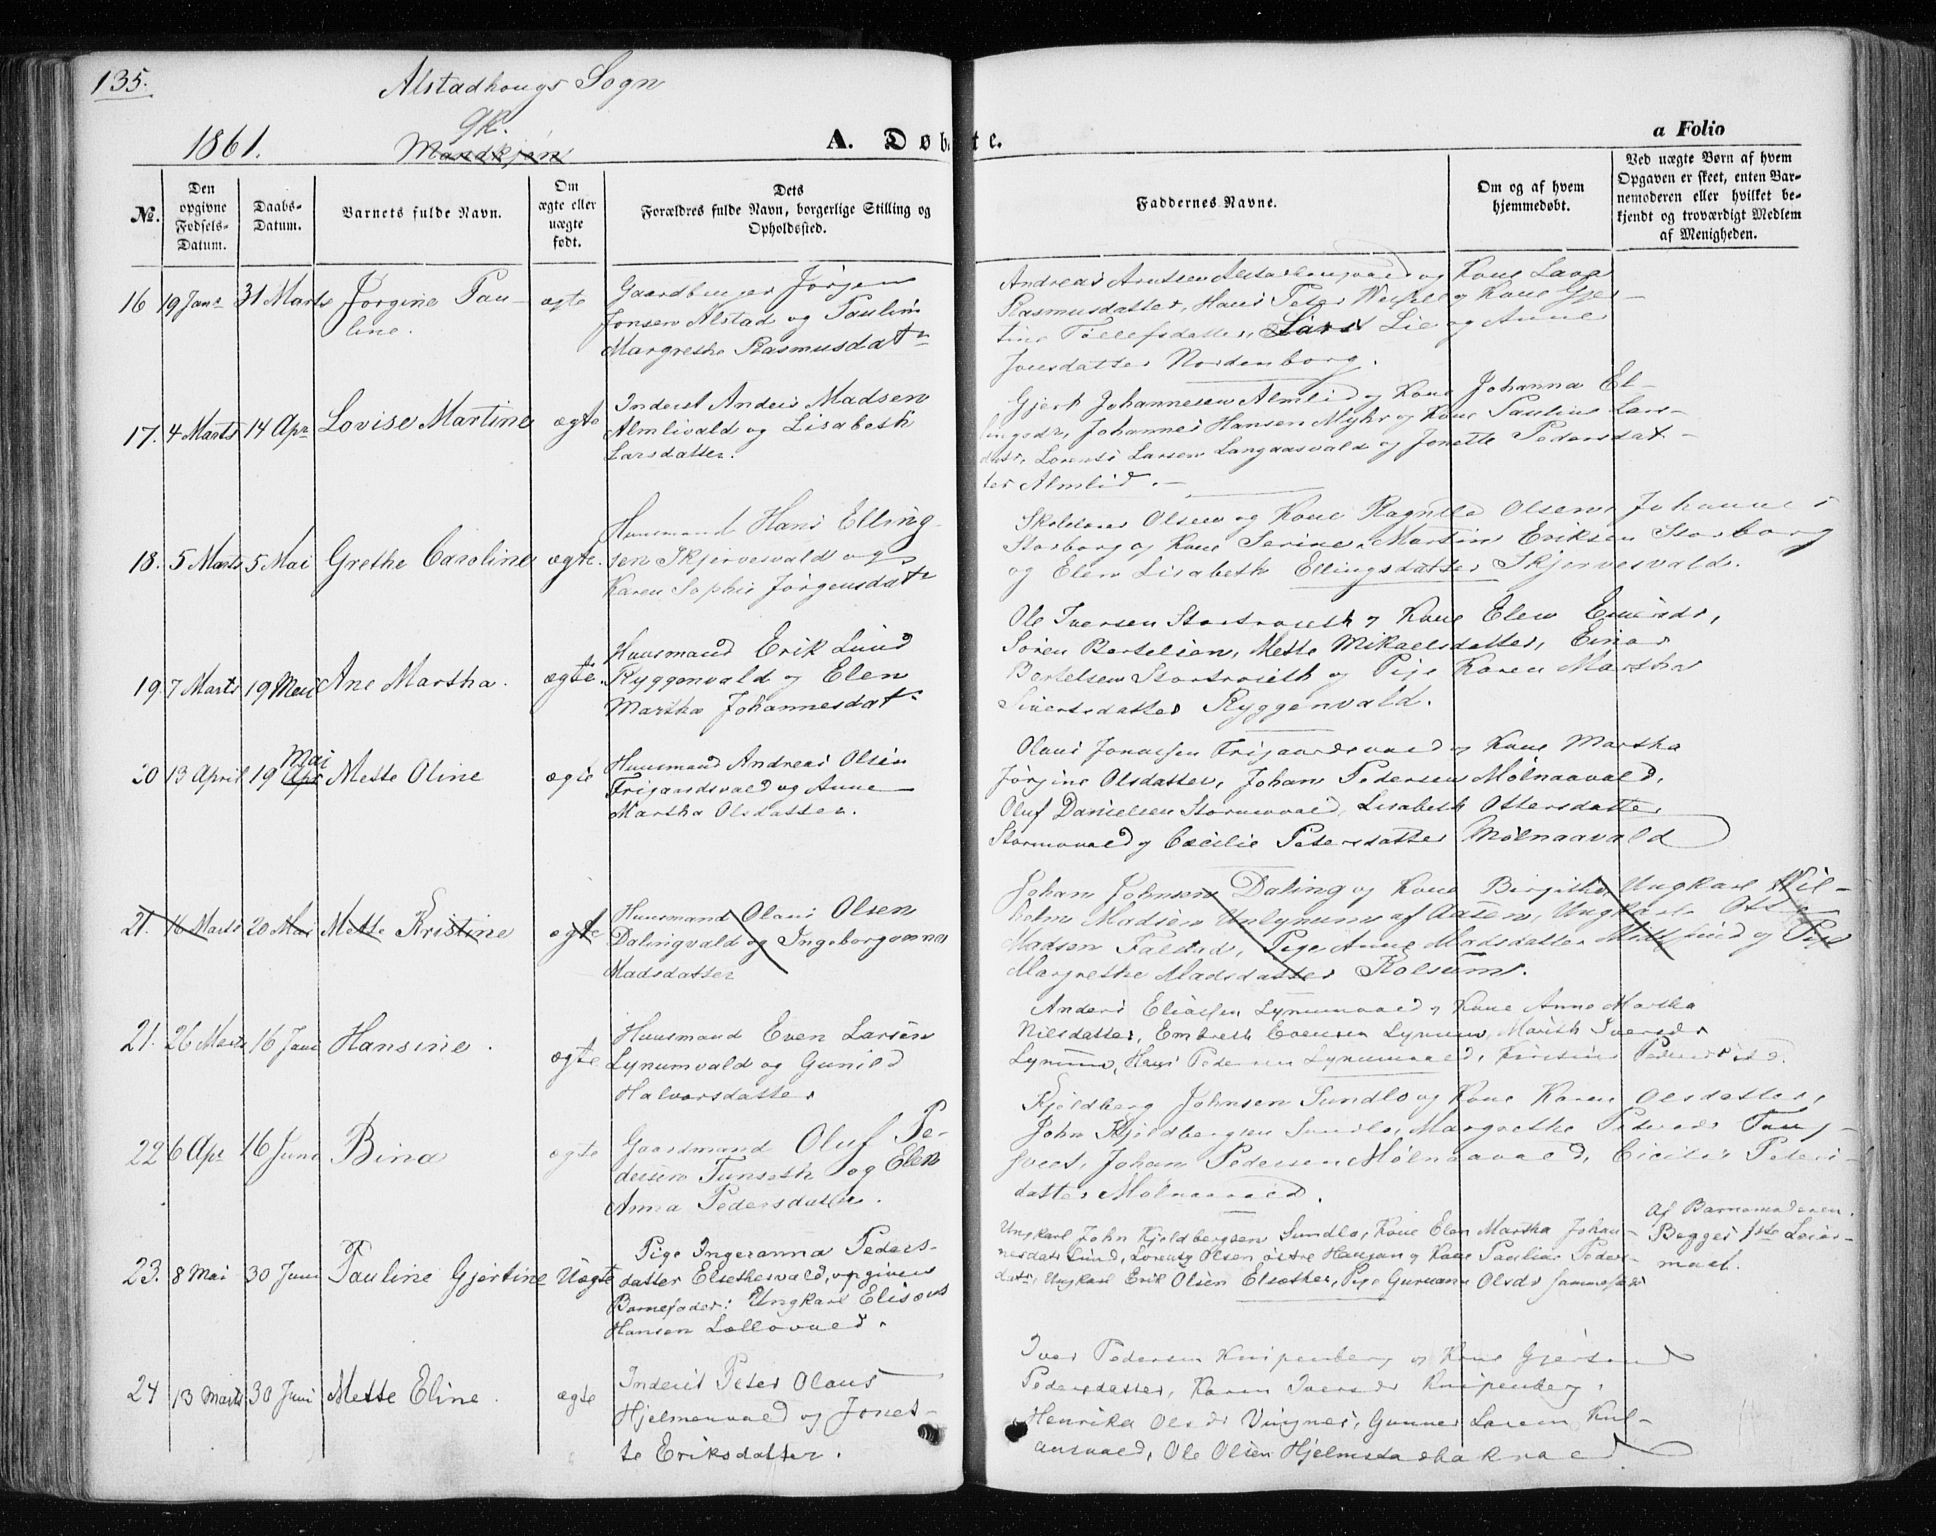 135.
Alstadhougs Sogn
1861.
QK.
Mandkjøn
A. Døbte.
a Folio
№.
Den opgivne Fødsels-Datum.
Daabs-Datum.
Barnets fulde Navn.
Om ægte eller uægte født.
Dets Forældres fulde Navn, borgerlige Stilling og Opholdssted.
Faddernes Navne.
Om og af hvem hjemmedøbt.
Ved uægte Børn af hvem Opgaven er skeet, enten Barnemoderen eller hvilket bekjendt og troværdigt Medlem af Menigheden.
16 19 Janr 31 Marts Jørgine Pau-
line.
ægte
Gaardbruger Jørgen
Jonsen Alstad og Paulin
Margrethe Rasmusdatr
Andreas Arntsen og Kone
Rasmusdatter, Hans Peter og Kone Gjer-
tine Tollefsdatter, Lars Lie og Anne
Jonsdatter Nordenborg.
17. 4 Marts 14 Apr Lovise Martine ægte
Inderst Anders Madsen
Almlivald og Lisabeth
Larsdatter.
Gjert Johannesen Almlid og Kone Johanna El-
lingsdr, Johannes Hansen Myhr og Kone Pauline Lars-
datr, Lorents Larsen Langaasvald og Jonette Pedersdat-
ter Almlid.
18. 5 Marts 5 Mai Grethe Caroline ægte.
Huusmand Hans Elling-
sen Skjervesvald og
Karen Sophie Jørgensdatr
Skolelærer Olsen og Kone Ragnilla Olsen, Johannes
Storborg og Kone Serine, Martin Eriksen Storborg
og Elen Lisabeth Ellingsdatter Skjervesvald.
19. 7 Marts 19 Mai Ane Martha. ægte.
Huusmand Erik Lund
Ryggenvald og Elen
Martha Johannesdatr
Ole Iversen og Kone Elen
Søren Bertelsen, Mette Mikaelsdatter, Einar
Bertelsen og Pige Karen Martha
Sivertsdatter Ryggenvald.
20 13 April 19 Apr Mai Mette Oline ægte
Huusmand Andreas Olsen
Frigaardsvald og Anne
Martha Olsdatter.
Olaus Jonassen Frigaardsvald og Kone Martha
Jørgine Olsdatter, Johan Pedersen Mølnaavald,
Oluf Danielsen Stormovald, Lisabeth Ottersdatter
Stormovald og Cæcilie Petersdatter Mølnaavald
21. 16 Marts 20 Mai Mette Kristine ægte
Huusmand Olaus Olsen
Dalingvald og Ingeborganna
Madsdatter
Johan Johnsen Daling og Kone Birgitha, Ungkarl Wil-
helm Madsen af Aasen, Ungkarl
Madsen Falstad, Pige Anne Madsdatter og Pige
Margrethe Madsdatter
21. 26 Marts 16 Juni Hansine. ægte
Huusmand Even Larsen
Lynumvald og Gunild
Halvorsdatter
Anders Eliassen Lynumvald og Kone Anne Martha
Nilsdatter, Embreth Evensen Lynum, Marith Iversdr
Lynum, Hans Pedersen Lynumvald,
22 6 Apr 16 Juni Bina ægte
Gaardmand Oluf Pe-
dersen Tunseth og Elen
Anna Pedersdatter.
Kjeldberg Johnsen Sundlo og Kone Karen Olsdatter,
John Kjeldbergsen Sundlo, Margrethe
Johan Pedersen Mølnaavald, Peters-
datter Mølnaavald.
23. 8 Mai 30 Juni Pauline Gjertine Uægte
Pige Ingeranna Peders-
datter Elsethesvald, opgiven
Barnefader: Ungkarl Elisæus
Hansen
Ungkarl John Kjeldbergsen Sundlo, Kone Elen Martha Johan-
nesdatr Lund, Lorents Olsen østre Haugan og Kone Pauline Peders-
datr, Ungkarl Erik Olsen Elsether, Pige Guruanne Olsdr sammested
Af Barnemoderen.
Begges 1ste Leier-
maal.
24 13 Marts 30 Juni Mette Eline. ægte
Inderst Peter Olaus
Hjelmenvald og Jonet-
te Eriksdatter.
Iver Pedersen Knipenberg og Kone
Pedersdatter, Karen Iversdr Knipenberg,
Henrika Olsdr Gunner Larsen
Ole Olsen